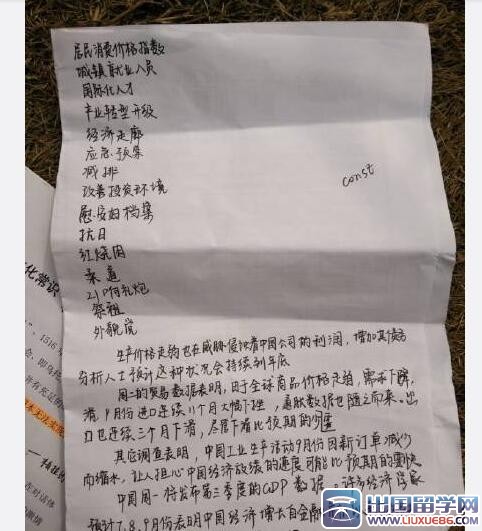 居民消费价格指数
城镇就业人员
国际化人才
产业转型升级
经济走廊
应急预案
减排
改善投资环境
慰安妇档案
抗日
红烧肉
柔道
21响礼炮
祭祖
外貌党
const
生产价格走钩也在威胁侵蚀着中国公司的利润，增加其债务
分析人士预计这种状况会持续到年底
周二的贸易数据表明，因于全球商品价格走钩，需求下降，
滑，9月份进口连续11个月大幅下挫，通缩数据也随之而来。出
口也连续三个月下滑，尽管下滑比预期的少
其官调查表明，中国工业生产活动9月份因新订单减少
而缩水，让人担心中国经济放缓的速度可能比预期的要快
中国周一将发布第三季度的GDP数据。许多经济学家
预计7、8、9月份表明中国经济增长自金融
化常识
1516年
即乌托
本无法实现
出国留学网
WWW.LIUXUE86.COM